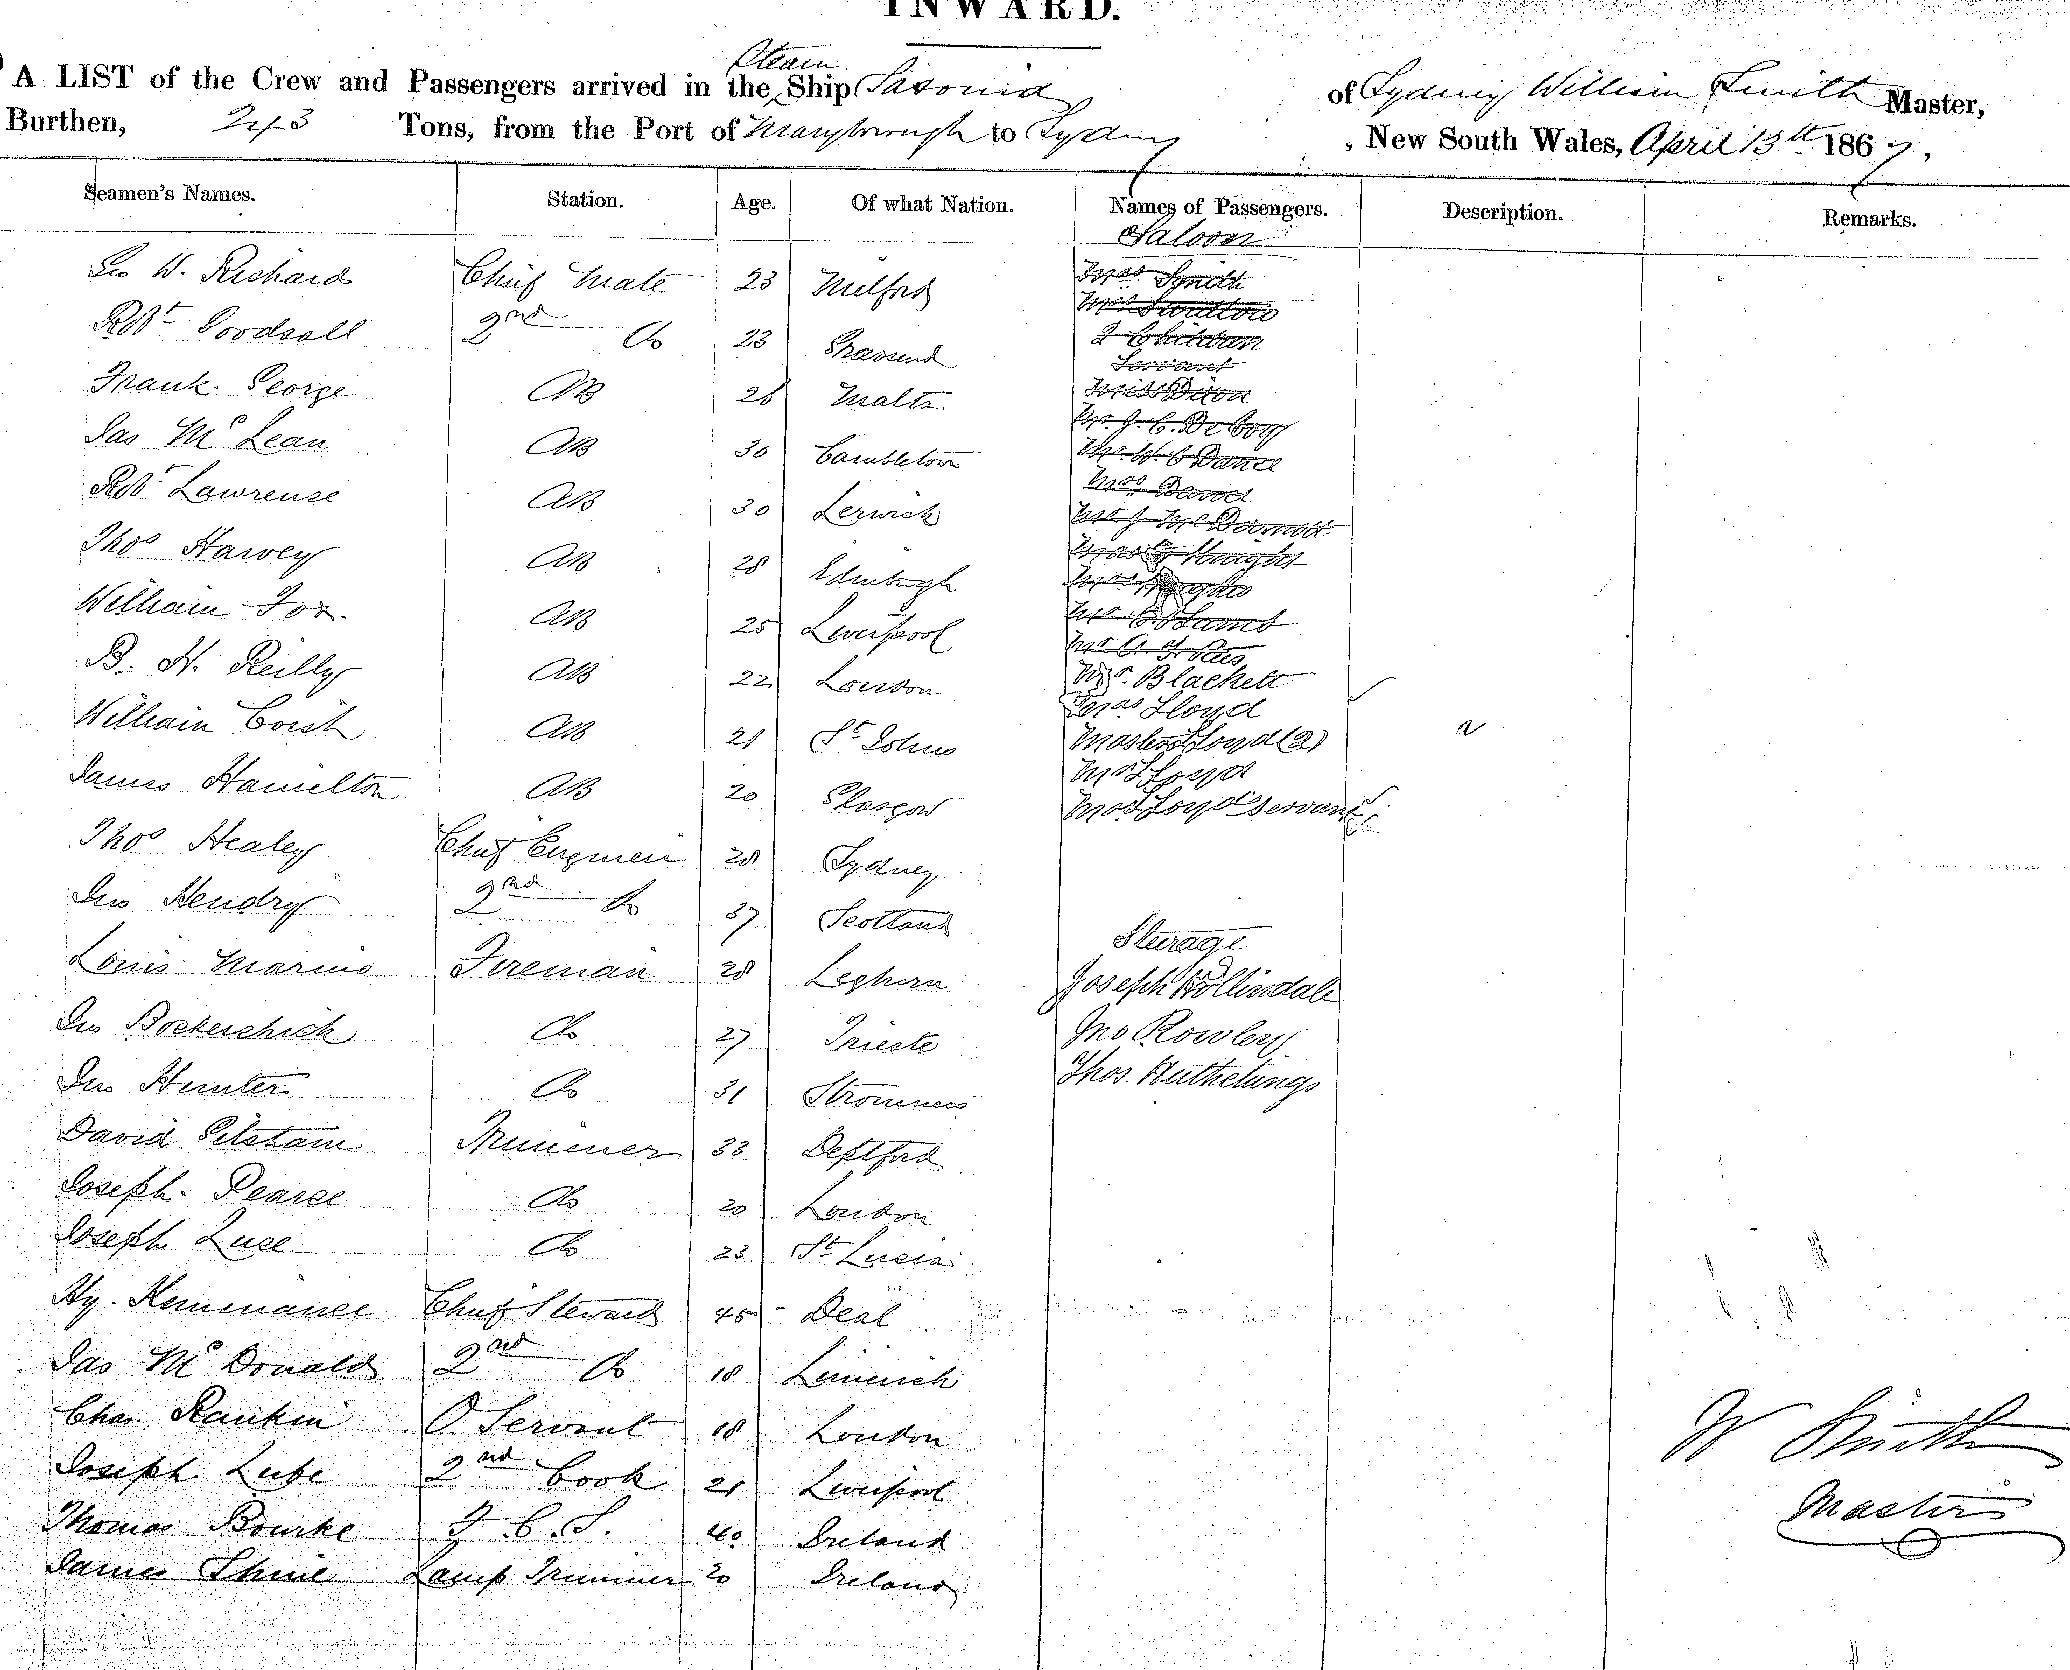 INWARD.
A LIST of the Crew and Passengers arrived in the Steam Ship Saxonia of Sydney William Smith Master,
Burthen, 243 Tons, from the Port of Maryborough to Sydney, New South Wales, April 13th 1867.
Seamen's Names. Station. Age. Of what Nation. Names of Passengers. Description. Remarks.
Saloon
Jno W. Richard Chief Mate 23 Milford Mrs Smith
Robt Goodsall 2nd Do 23 Gravesend
2 Children
Servant
Frank George AB 26 Malta Miss Dixon
Jas McLean AB 30 Cambleton
Robt Lawrense AB 30 Lerwick
Thos Harvey AB 28 Edinburgh
William Fox AB 25 Liverpool Mr Lamb
B. H. Reilly AB 22 London Mr. Blackett
Mrs Lloyd
William Corish AB 21 St Johns Masters Lloyd (2) 2
Mr Lloyd
James Hamilton AB 20 Glasgow Mrs Lloyds Servant
Thos Healey Chief Engineer 28 Sydney
Jno Hendry 2nd Do 37 Scotland
Sturage
Louis Marino Fireman 28 Leghorn Joseph Hollindale
Jno Do 27 Trieste Jno Rowley
Jno Hunter Do 31 Stromness Thos.
David Trimmer 33 Deptford
Joseph Pearce Do 20 London
Joseph Luce Do 23 St Lucia
Hy. Kemmance Chief Steward 45 Deal
Jas McDonald 2nd Do 18 Limerick
Chas Rankin O. Servant 18 London
W Smith
Joseph Lube 2nd Cook 21 Liverpool
Master
Thomas Bourke F. C. S. 40 Ireland
James Shine Lamp Trimmer 20 Ireland